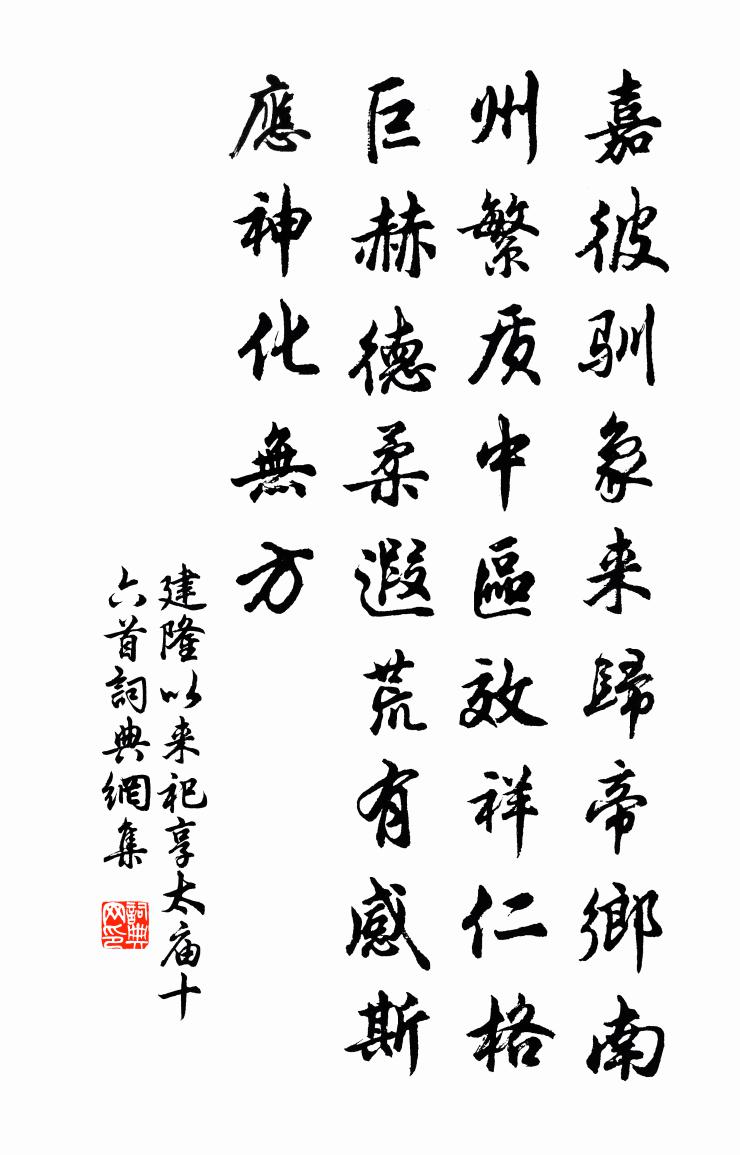 嘉彼馴象来歸帝鄉南
州繁质中區效祥仁格
巨赫德柔遐荒有感斯
應神化無方
建隆以来祀享太庙十
六首詞典網集
詞典网印